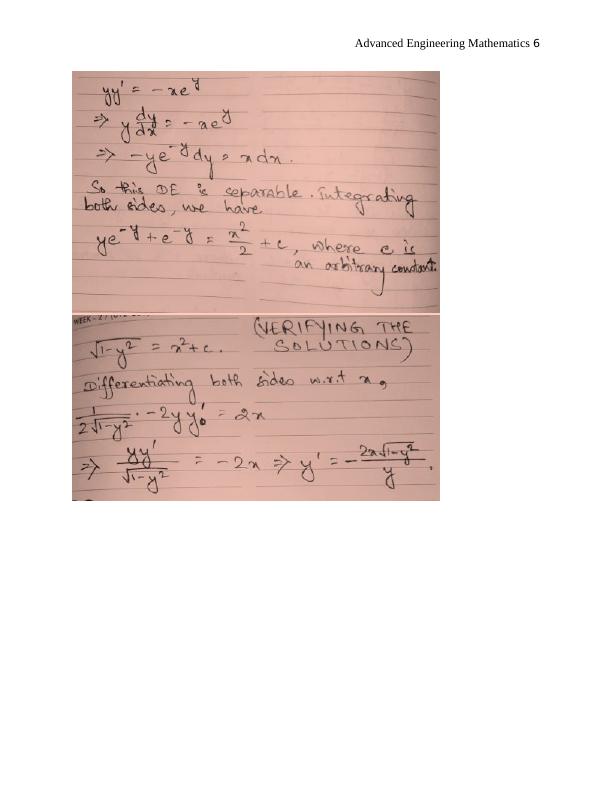 Advanced Engineering Mathematics 6
yy' = - xe^y
⇒ y dy/dx = - xe^y
⇒ -ye^-y dy = x dx.
So this DE is separable. Integrating
both sides, we have
ye^-y + e^-y = x²/2 + c, where c is
an arbitrary constant.
WEEK-2
(VERIFYING THE
√1-y² = x²+c. SOLUTIONS)
Differentiating both sides w.r.t x,
1/2√1-y² · -2y y' = 2x
⇒ yy'/√1-y² = -2x ⇒ y' = - 2x√1-y²/y .